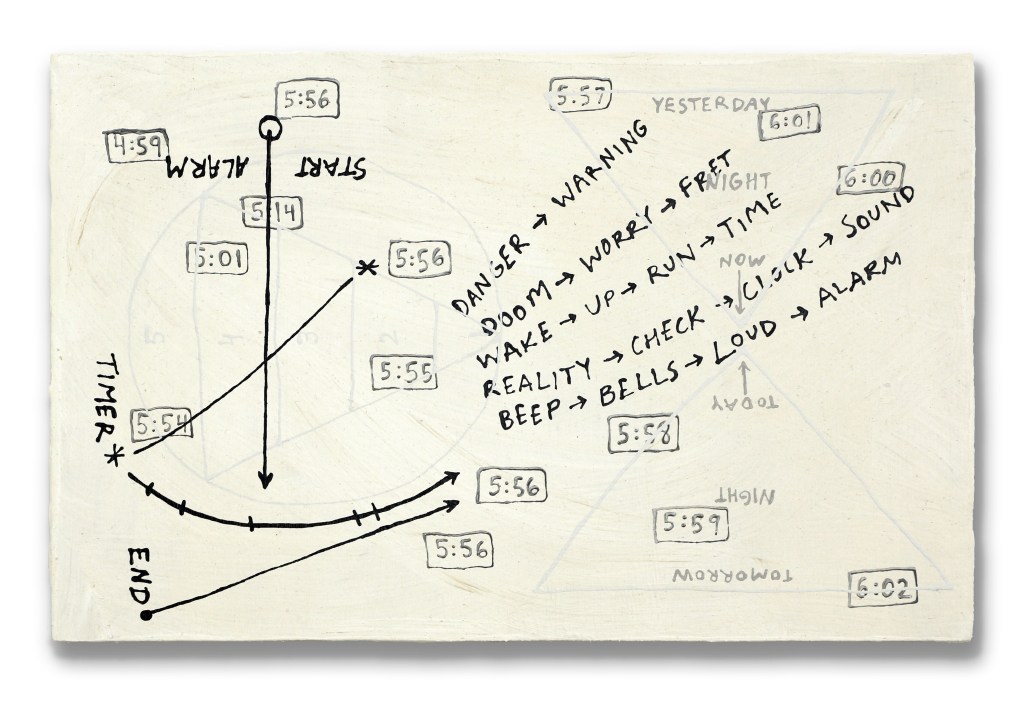 5:56
5.57
YESTERDAY
6:01
4:59
ALARM
START
NIGHT
6:00
5:14
5:01
5:56
NOW
DANGER → WARNING
DOOM → WORRY → FRET
WAKE → UP → RUN → TIME
REALITY → CHECK → CLOCK → SOUND
BEEP → BELLS → LOUD → ALARM
5 4 3 2
TIMER
5:55
TODAY
5:54
5:58
5:56
NIGHT
5:59
5:56
END
TOMORROW
6:02